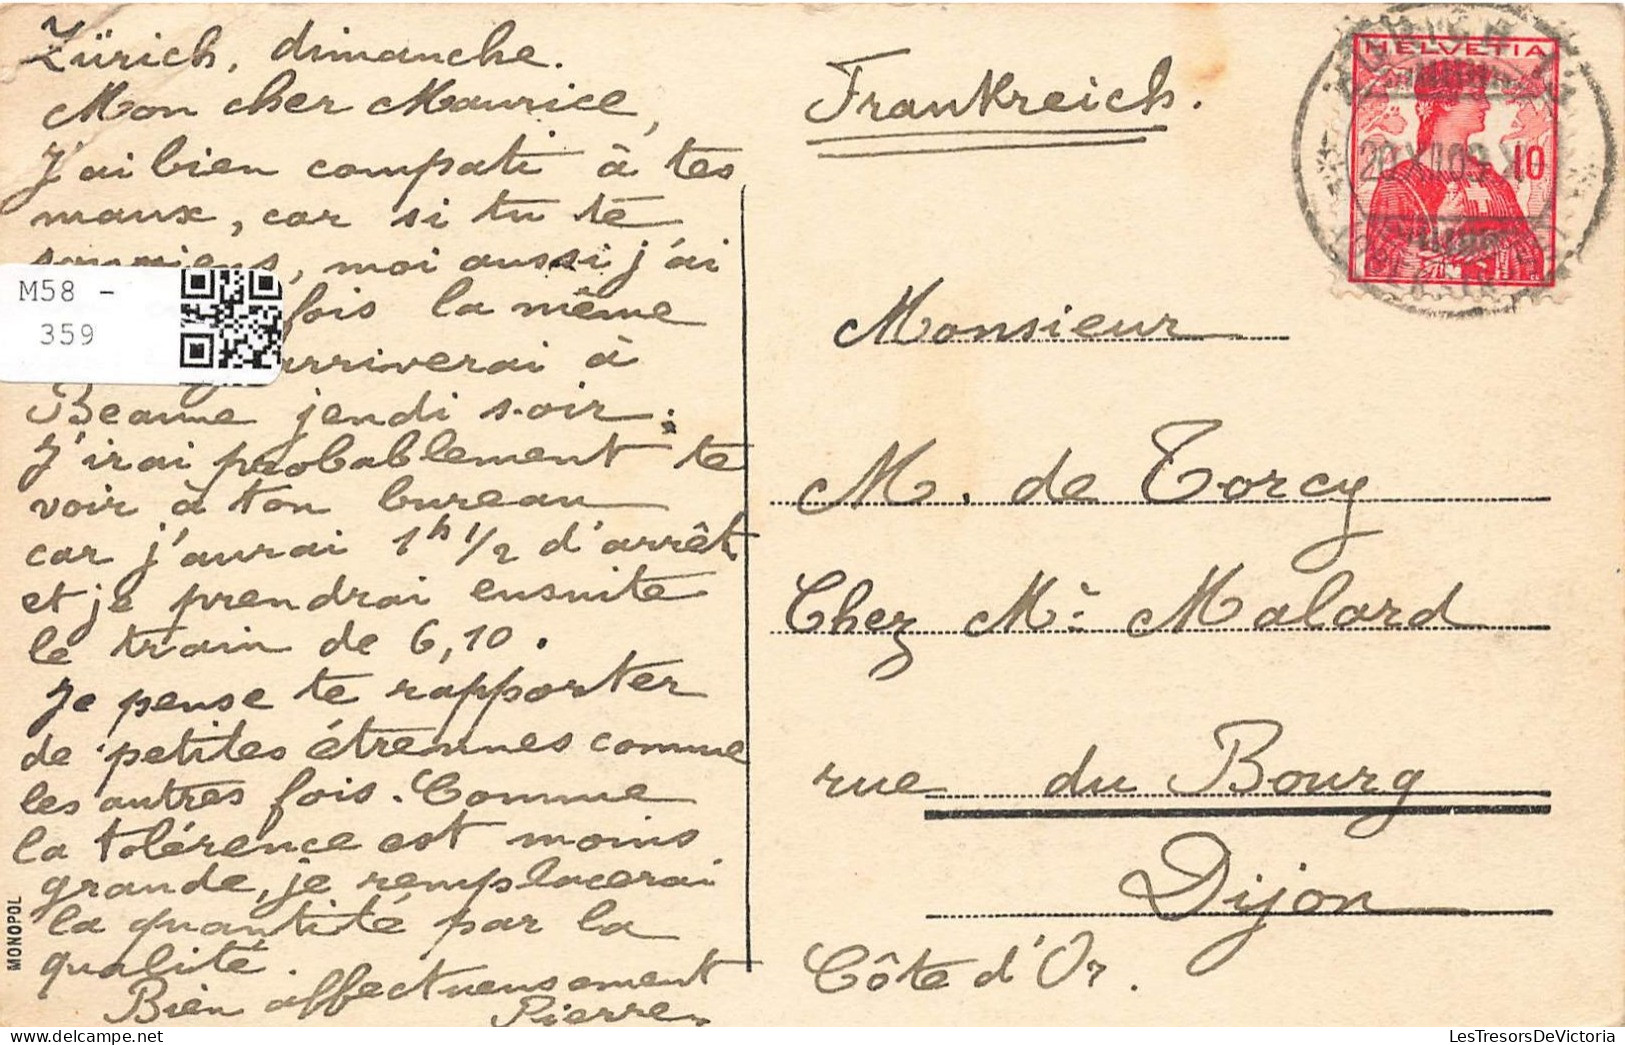 Zürich, dimanche.
Mon cher Maurice,
J'ai bien compati à tes
maux, car si tu te
souviens, moi aussi j'ai
fois la même
arriverai à
Beaune jeudi soir.
J'irai probablement te
voir à ton bureau
car j'aurai 1h 1/2 d'arrêt
et je prendrai ensuite
le train de 6,10.
Je pense te rapporter
de petites étrennes comme
les autres fois. Comme
la tolérence est moins
grande, je remplacerai
la quantité par la
qualité.
Bien affectueusement
Pierre
M58 -
359
MONOPOL
Frankreich.
HELVETIA
10
20.XII.09.X
Monsieur
M. de Torcy
Chez Mr Malard
rue du Bourg
Dijon
Côte d'Or.
LesTresorsDeVictoria.com